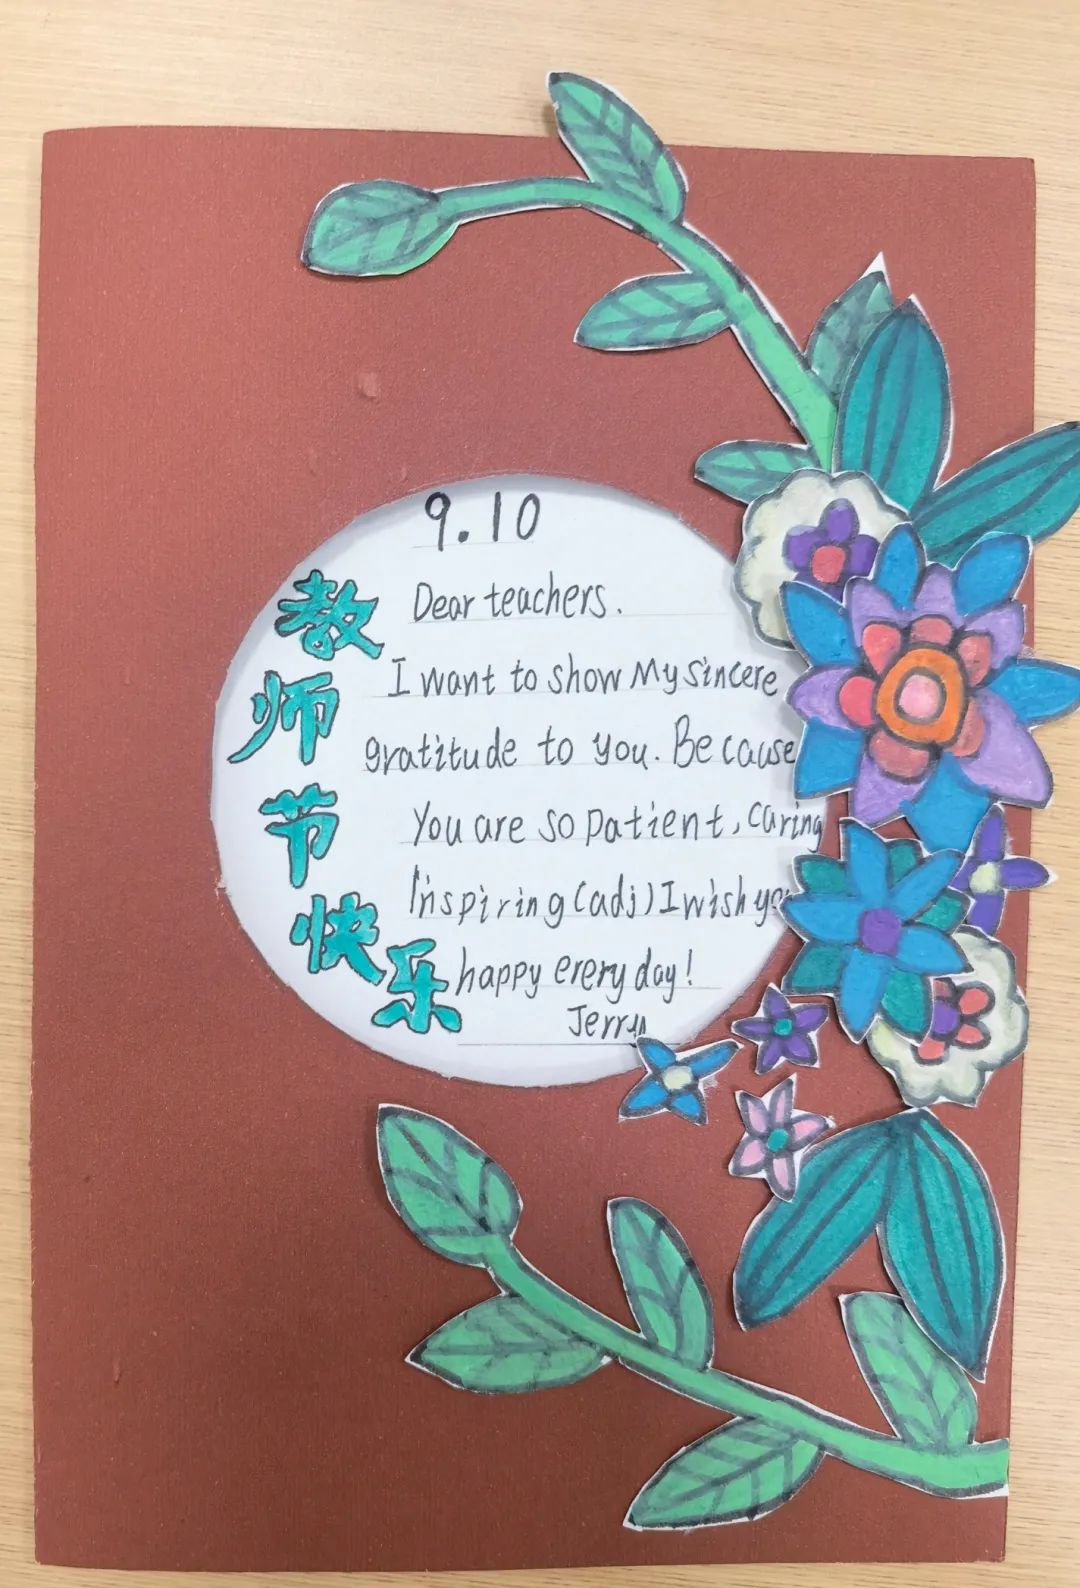 9.10
教师节快乐
Dear teachers.
I want to show My sincere
gratitude to you. Because
You are so patient, caring
Inspiring (adj) I wish you
happy every day!
Jerry